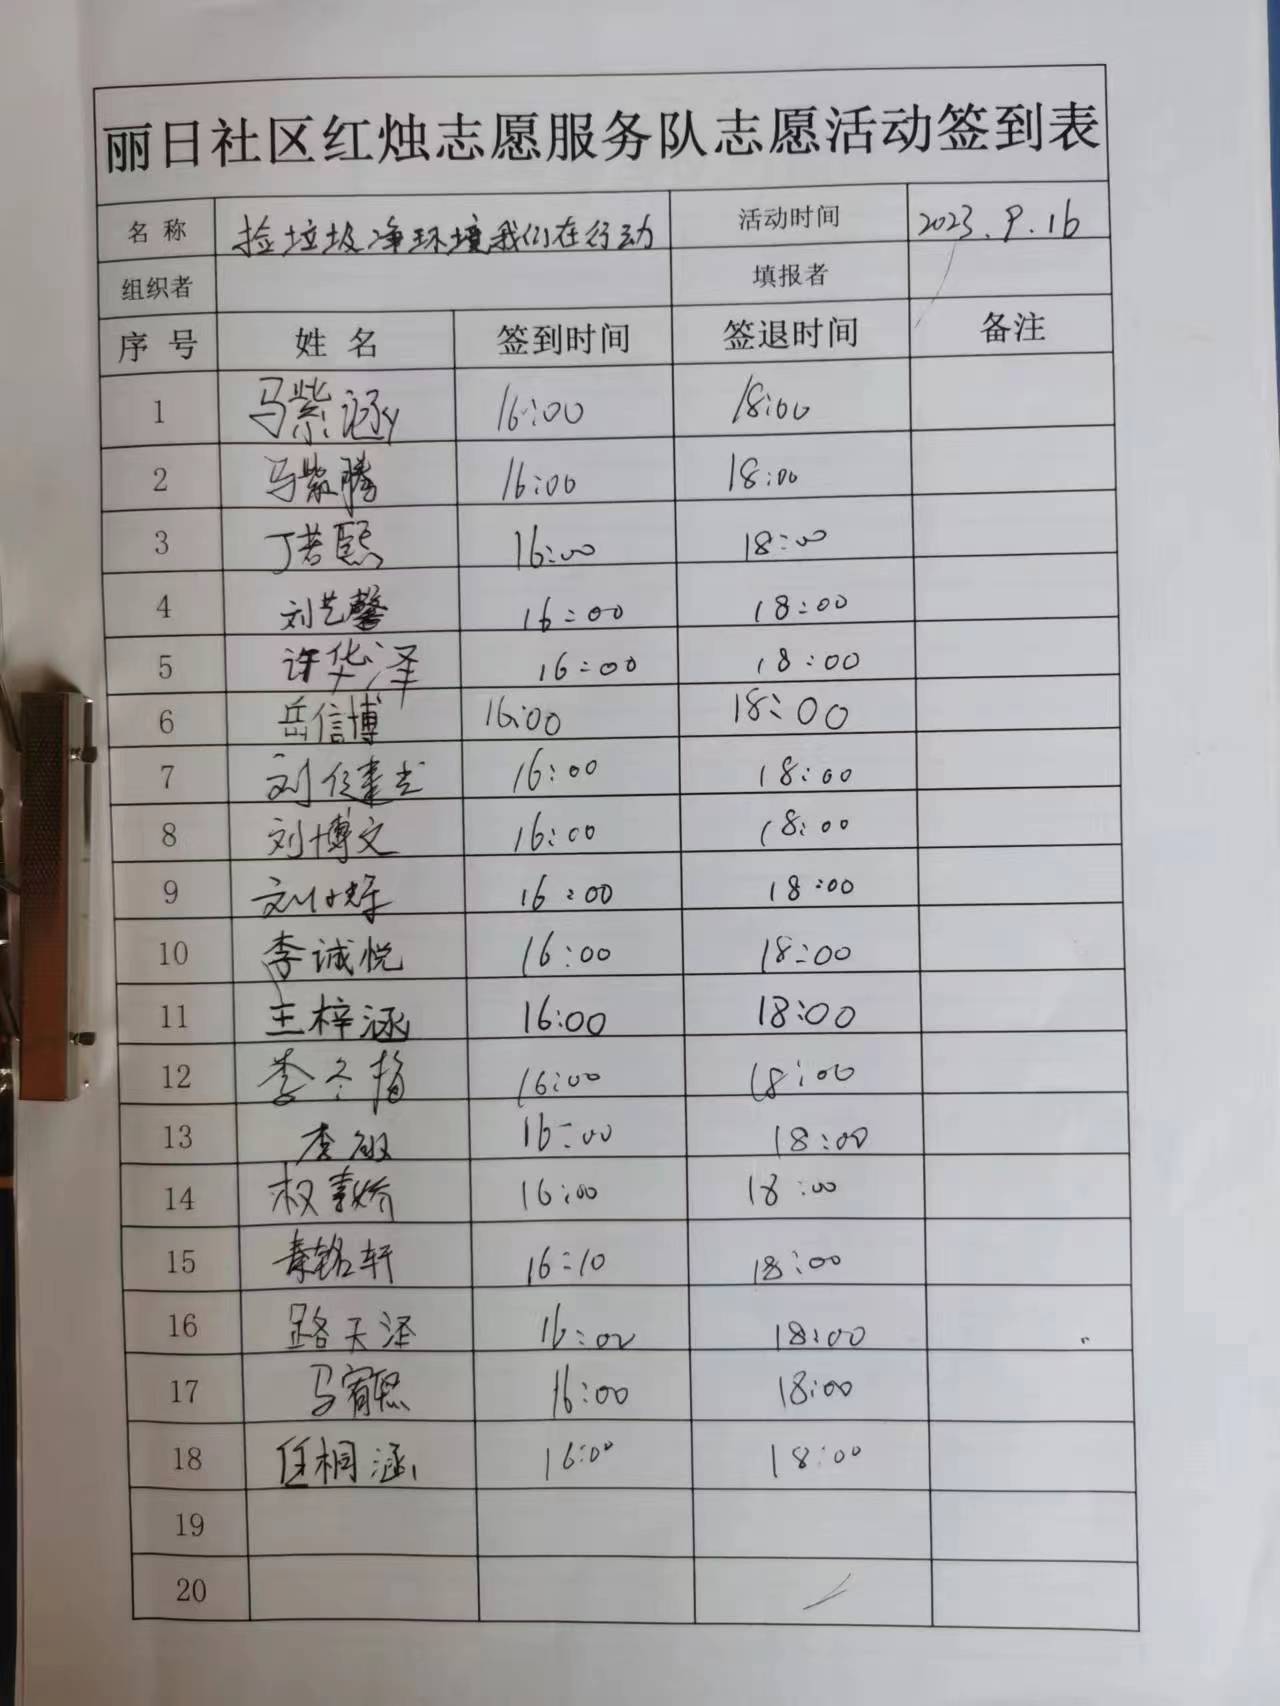 丽日社区红烛志愿服务队志愿活动签到表
名称 捡垃圾净环境我们在行动 活动时间 2023.9.16
组织者 填报者
序号 姓名 签到时间 签退时间 备注
1 马紫涵 16:00 18:00
2 马紫腾 16:00 18:00
3 丁若熙 16:00 18:00
4 刘艺馨 16:00 18:00
5 许华泽 16:00 18:00
6 岳信博 16:00 18:00
7 刘 16:00 18:00
8 刘博文 16:00 18:00
9 刘 16:00 18:00
10 李诚悦 16:00 18:00
11 王梓涵 16:00 18:00
12 李冬梅 16:00 18:00
13 李敏 16:00 18:00
14 权 娇 16:00 18:00
15 秦铭轩 16:10 18:00
16 路天泽 16:00 18:00
17 马宥恩 16:00 18:00
18 任桐涵 16:00 18:00
19
20